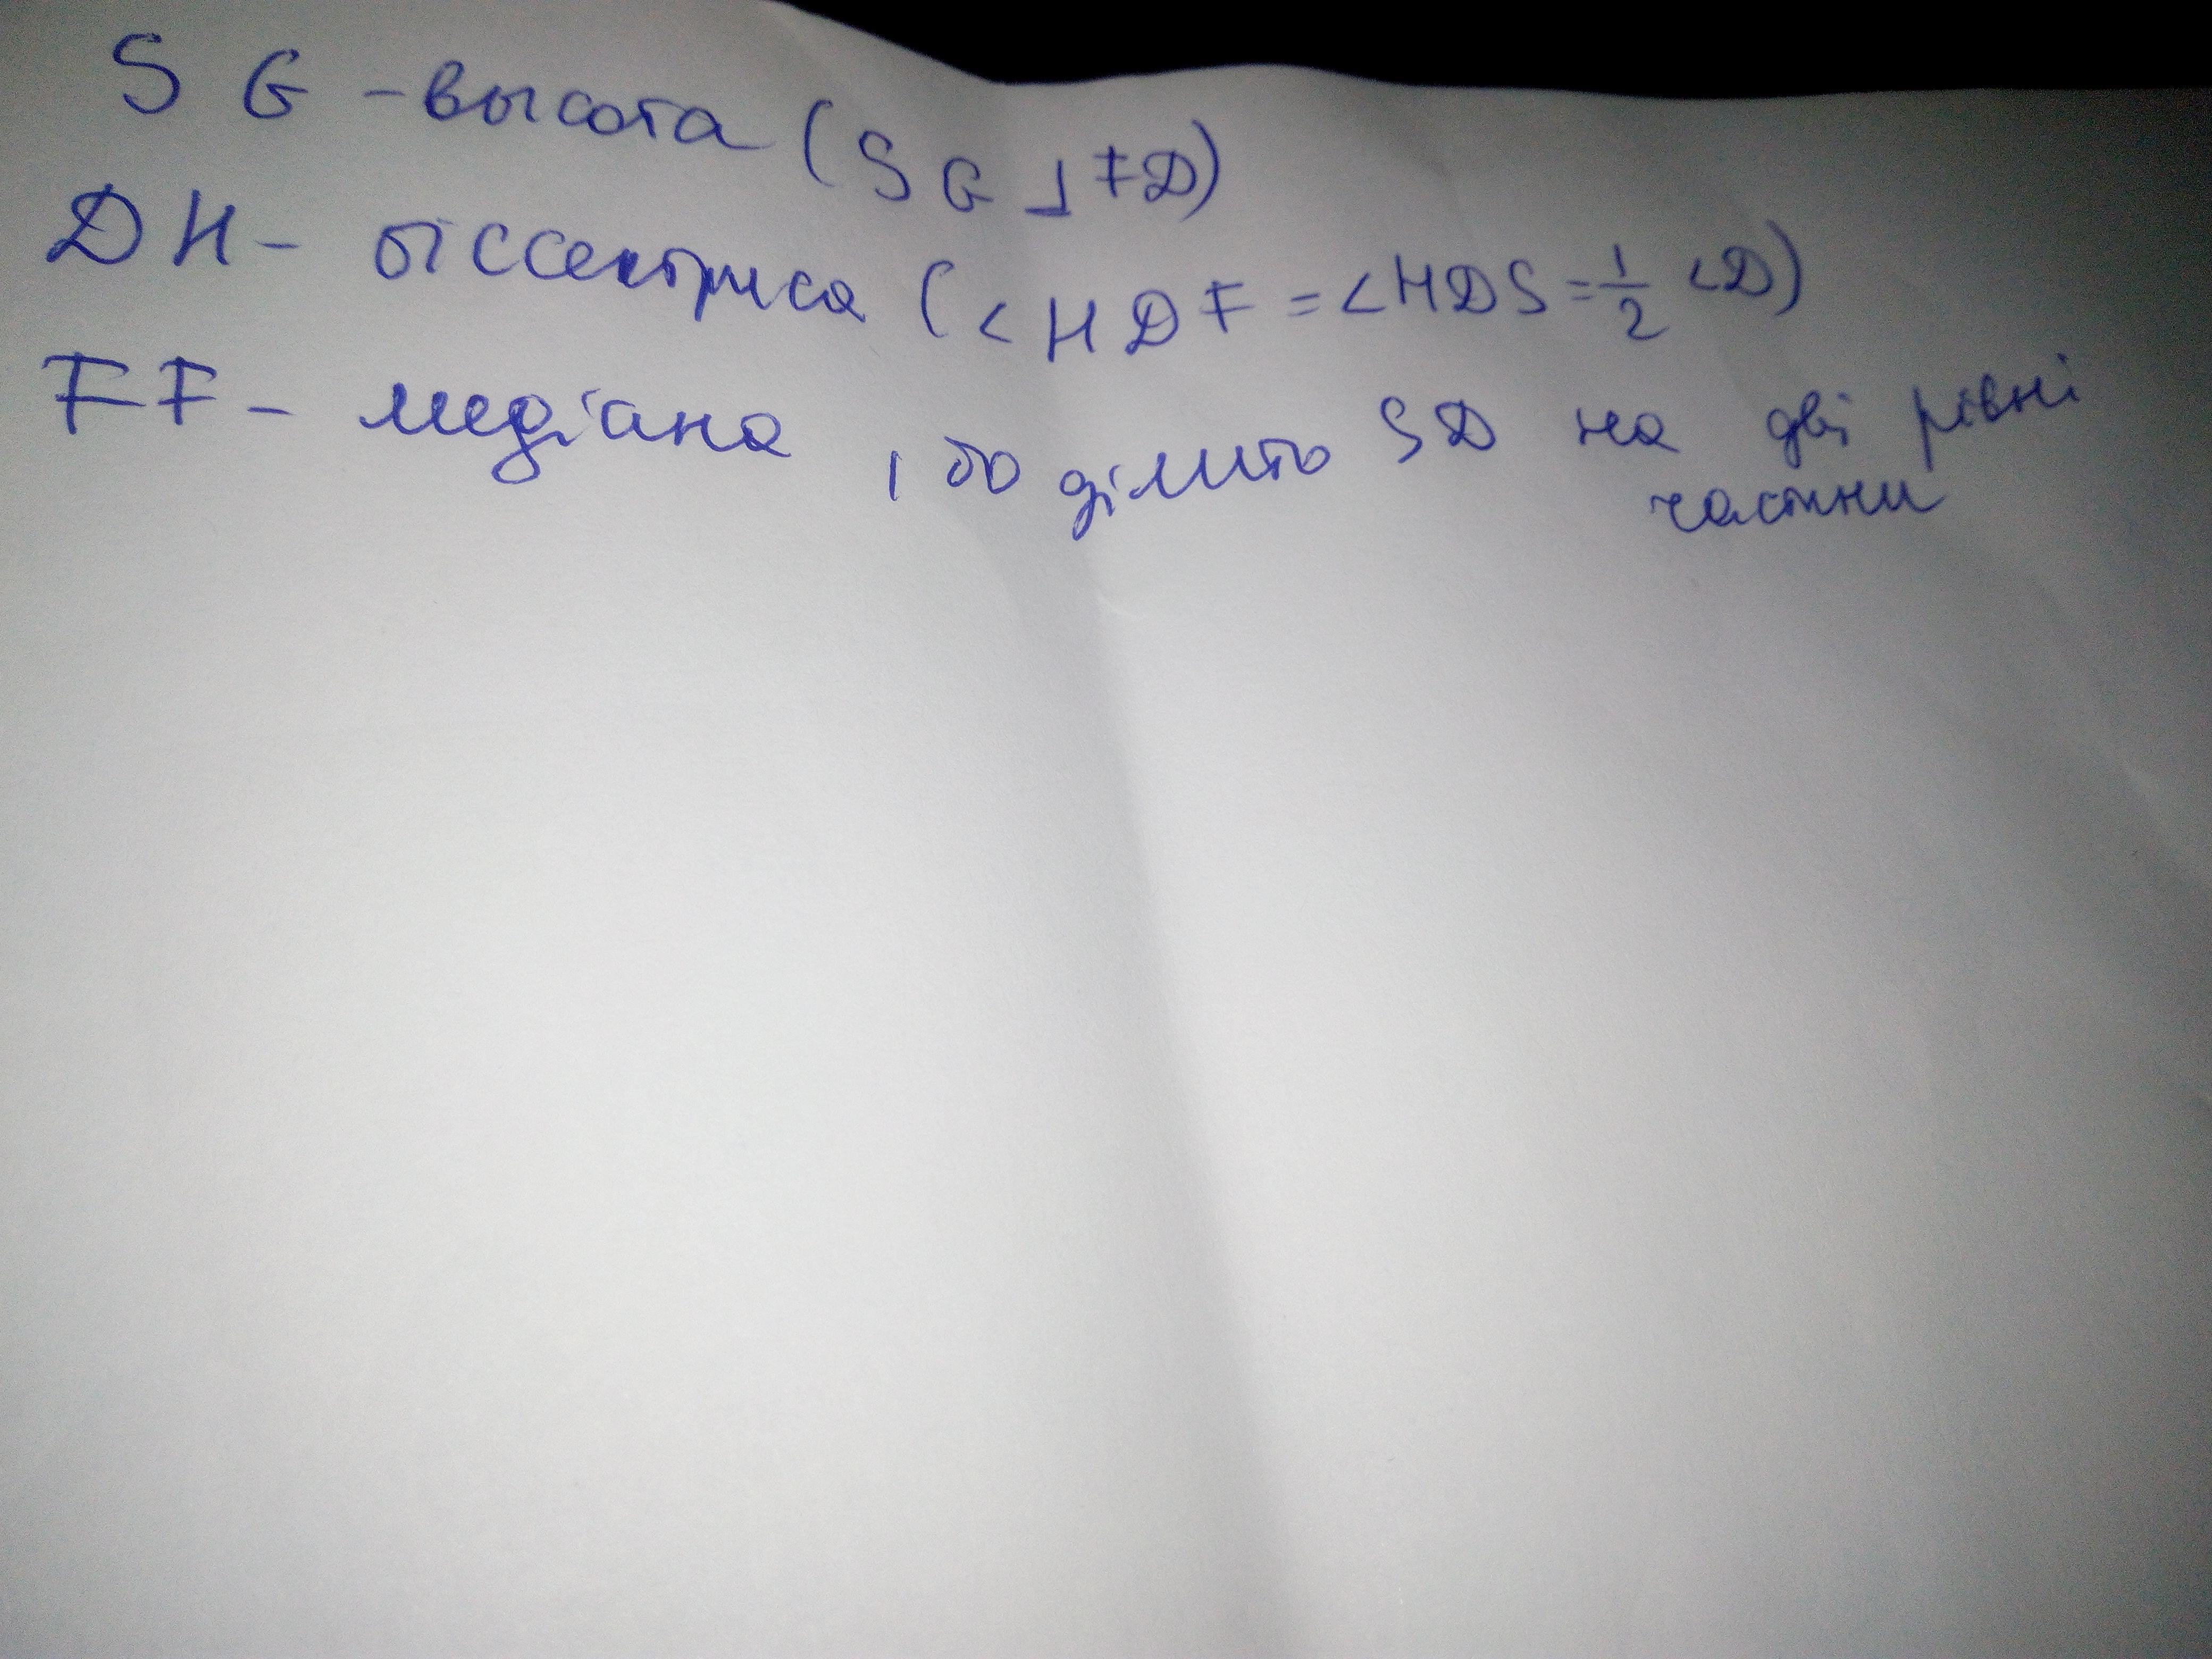 SG - высота (SG ⊥ FD)
DH - біссектриса (<HDF = <HDS = 1/2 <D)
FF - медіана, бо ділить SD на дві рівні
частини